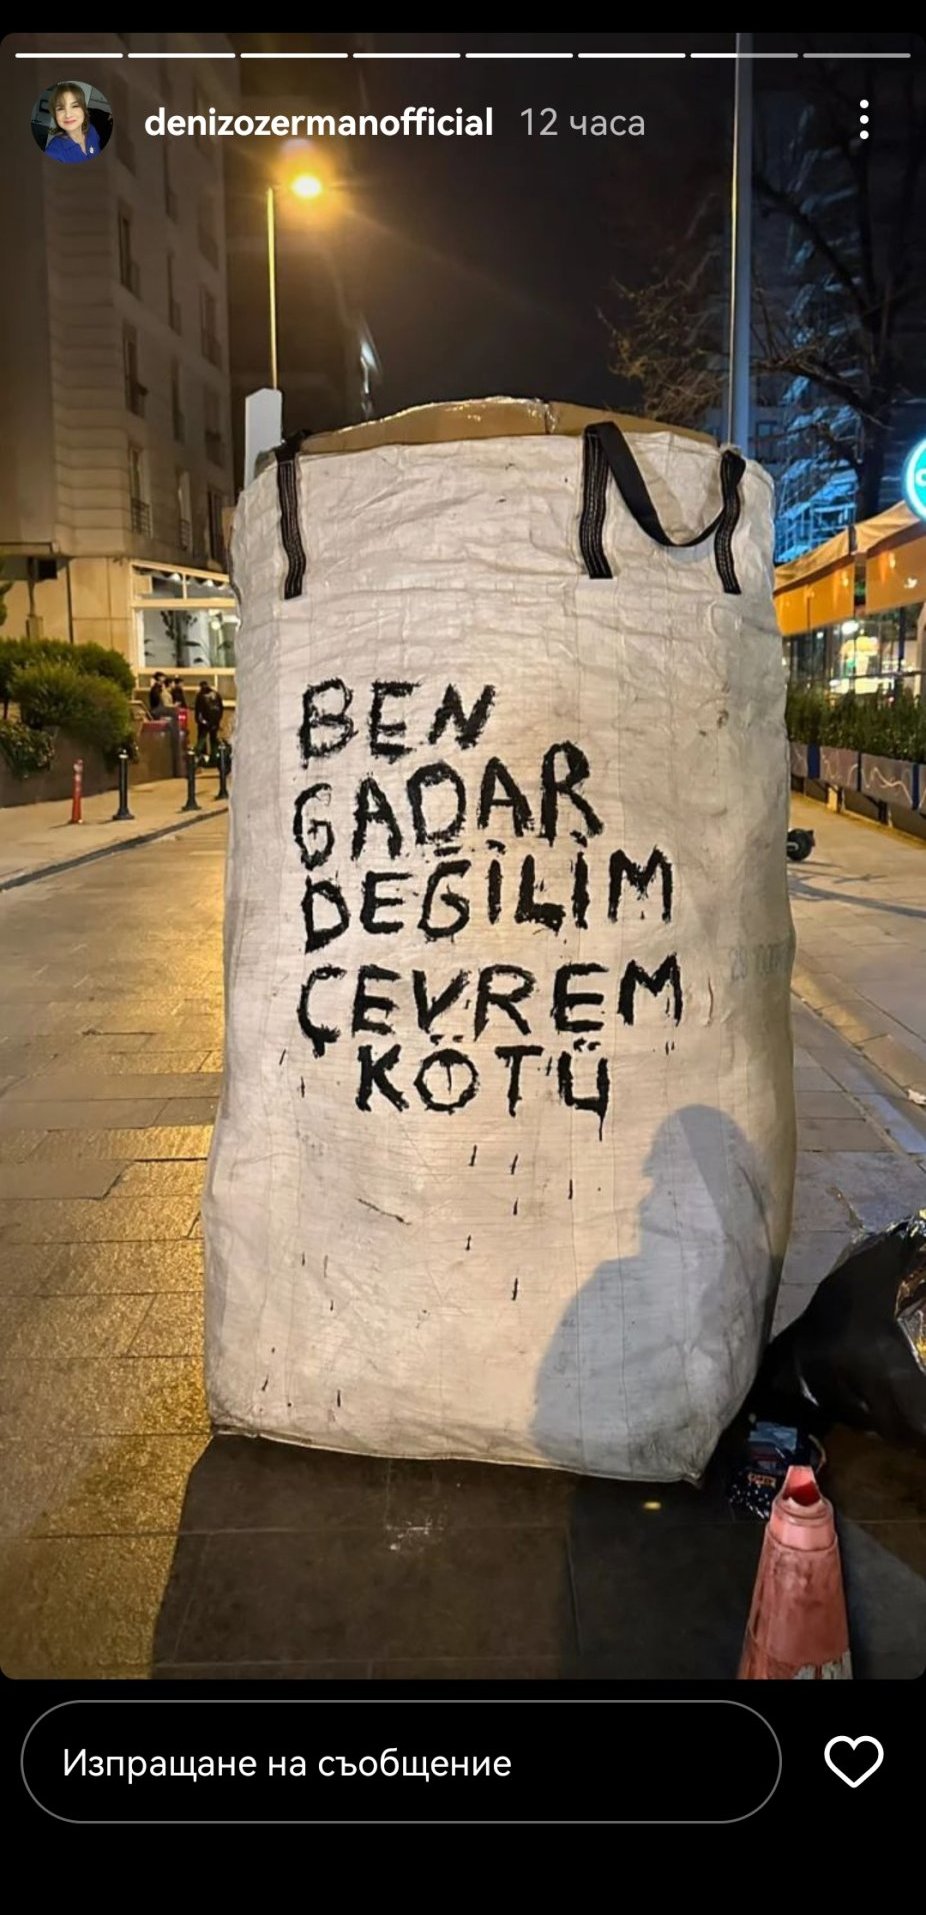 denizozermanofficial 12 часа
BEN
GADAR
DEĞİLİM
ÇEVREM
KÖTÜ
Изпращане на съобщение